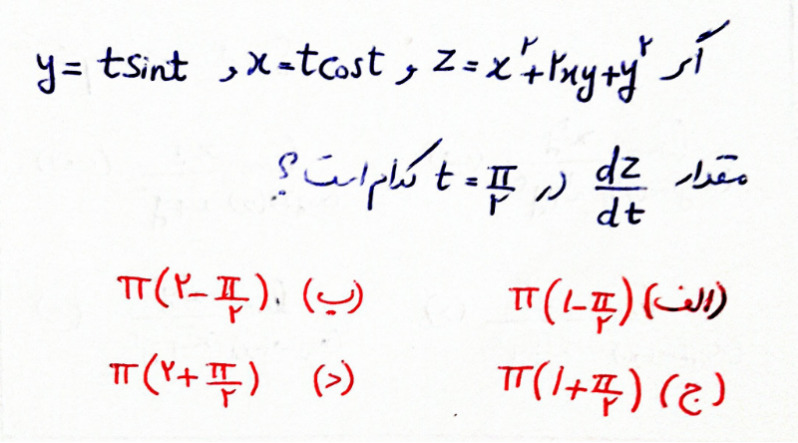 اگر z = x^۲ + ۲xy + y^۲ و x = tcost و y = tsint
مقدار dz/dt در t = π/۲ کدام است؟
الف) π(۱ - π/۲) ب) π(۲ - π/۲)
ج) π(۱ + π/۲) د) π(۲ + π/۲)